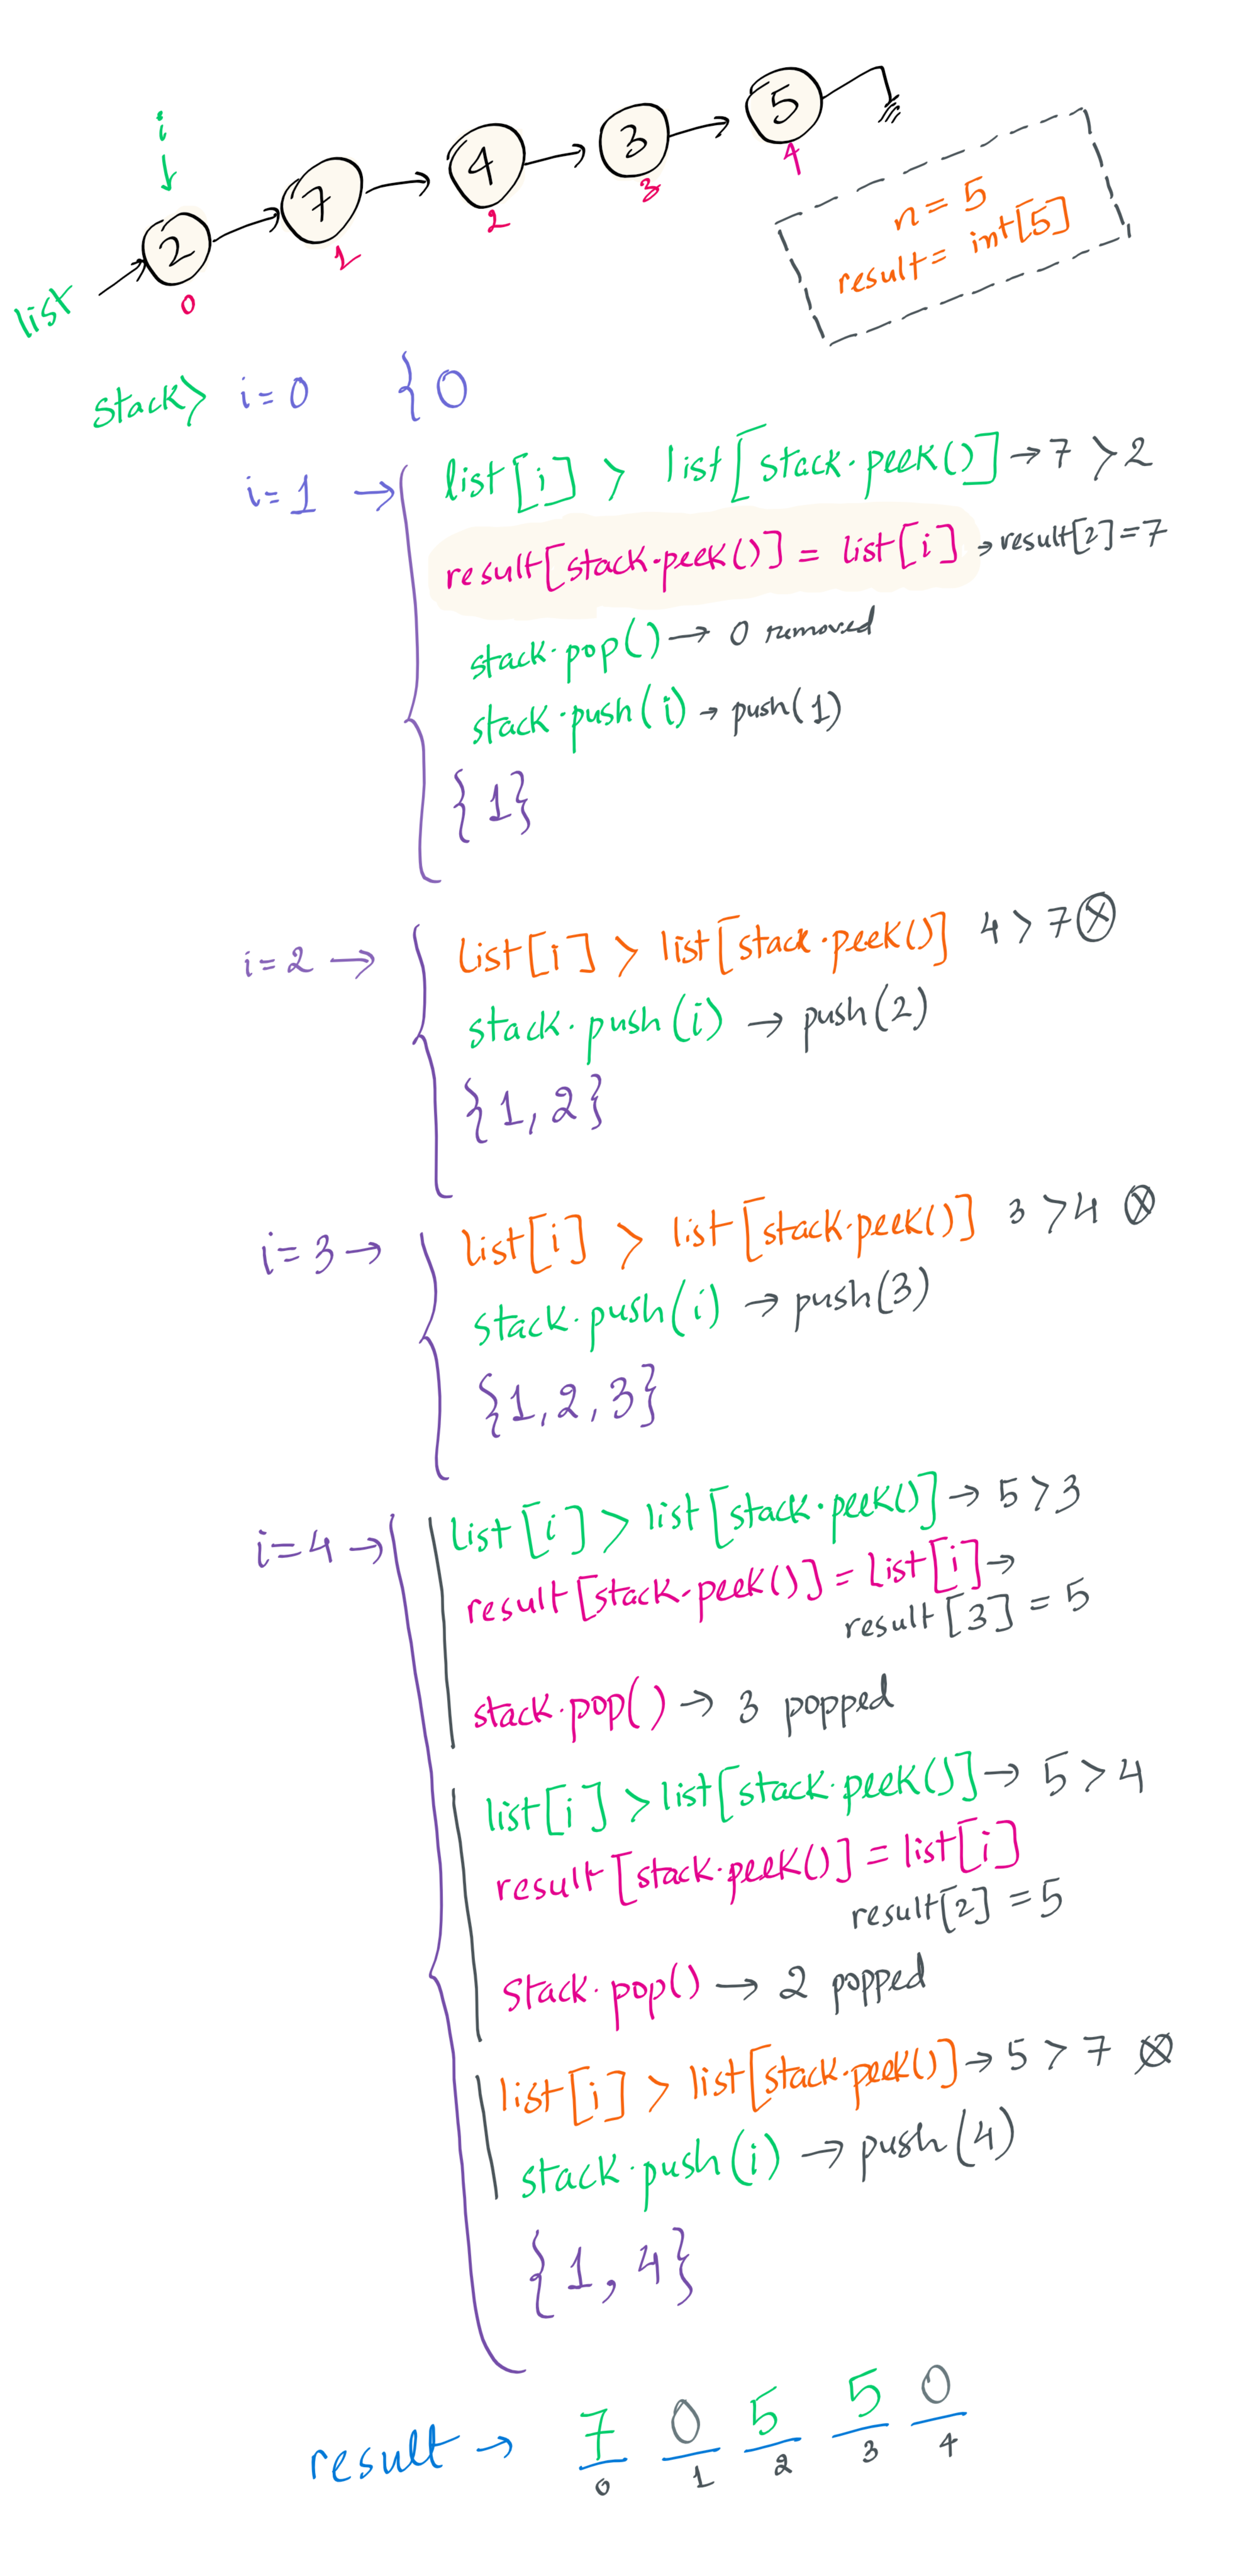 i
2 7 4 3 5
0 1 2 3 4
list
n = 5
result = int[5]
stack> i=0 {0
i=1 → list[i] > list[stack.peek()] → 7 > 2
result[stack.peek()] = list[i] → result[2]=7
stack.pop() → 0 removed
stack.push(i) → push(1)
{1}
i=2 → list[i] > list[stack.peek()] 4 > 7 ⊗
stack.push(i) → push(2)
{1,2}
i=3 → list[i] > list[stack.peek()] 3 > 4 ⊗
stack.push(i) → push(3)
{1,2,3}
i=4 → list[i] > list[stack.peek()] → 5 > 3
result[stack.peek()] = list[i] →
result[3] = 5
stack.pop() → 3 popped
list[i] > list[stack.peek()] → 5 > 4
result[stack.peek()] = list[i]
result[2] = 5
stack.pop() → 2 popped
list[i] > list[stack.peek()] → 5 > 7 ⊗
stack.push(i) → push(4)
{1,4}
result → 7 0 5 5 0
0 1 2 3 4